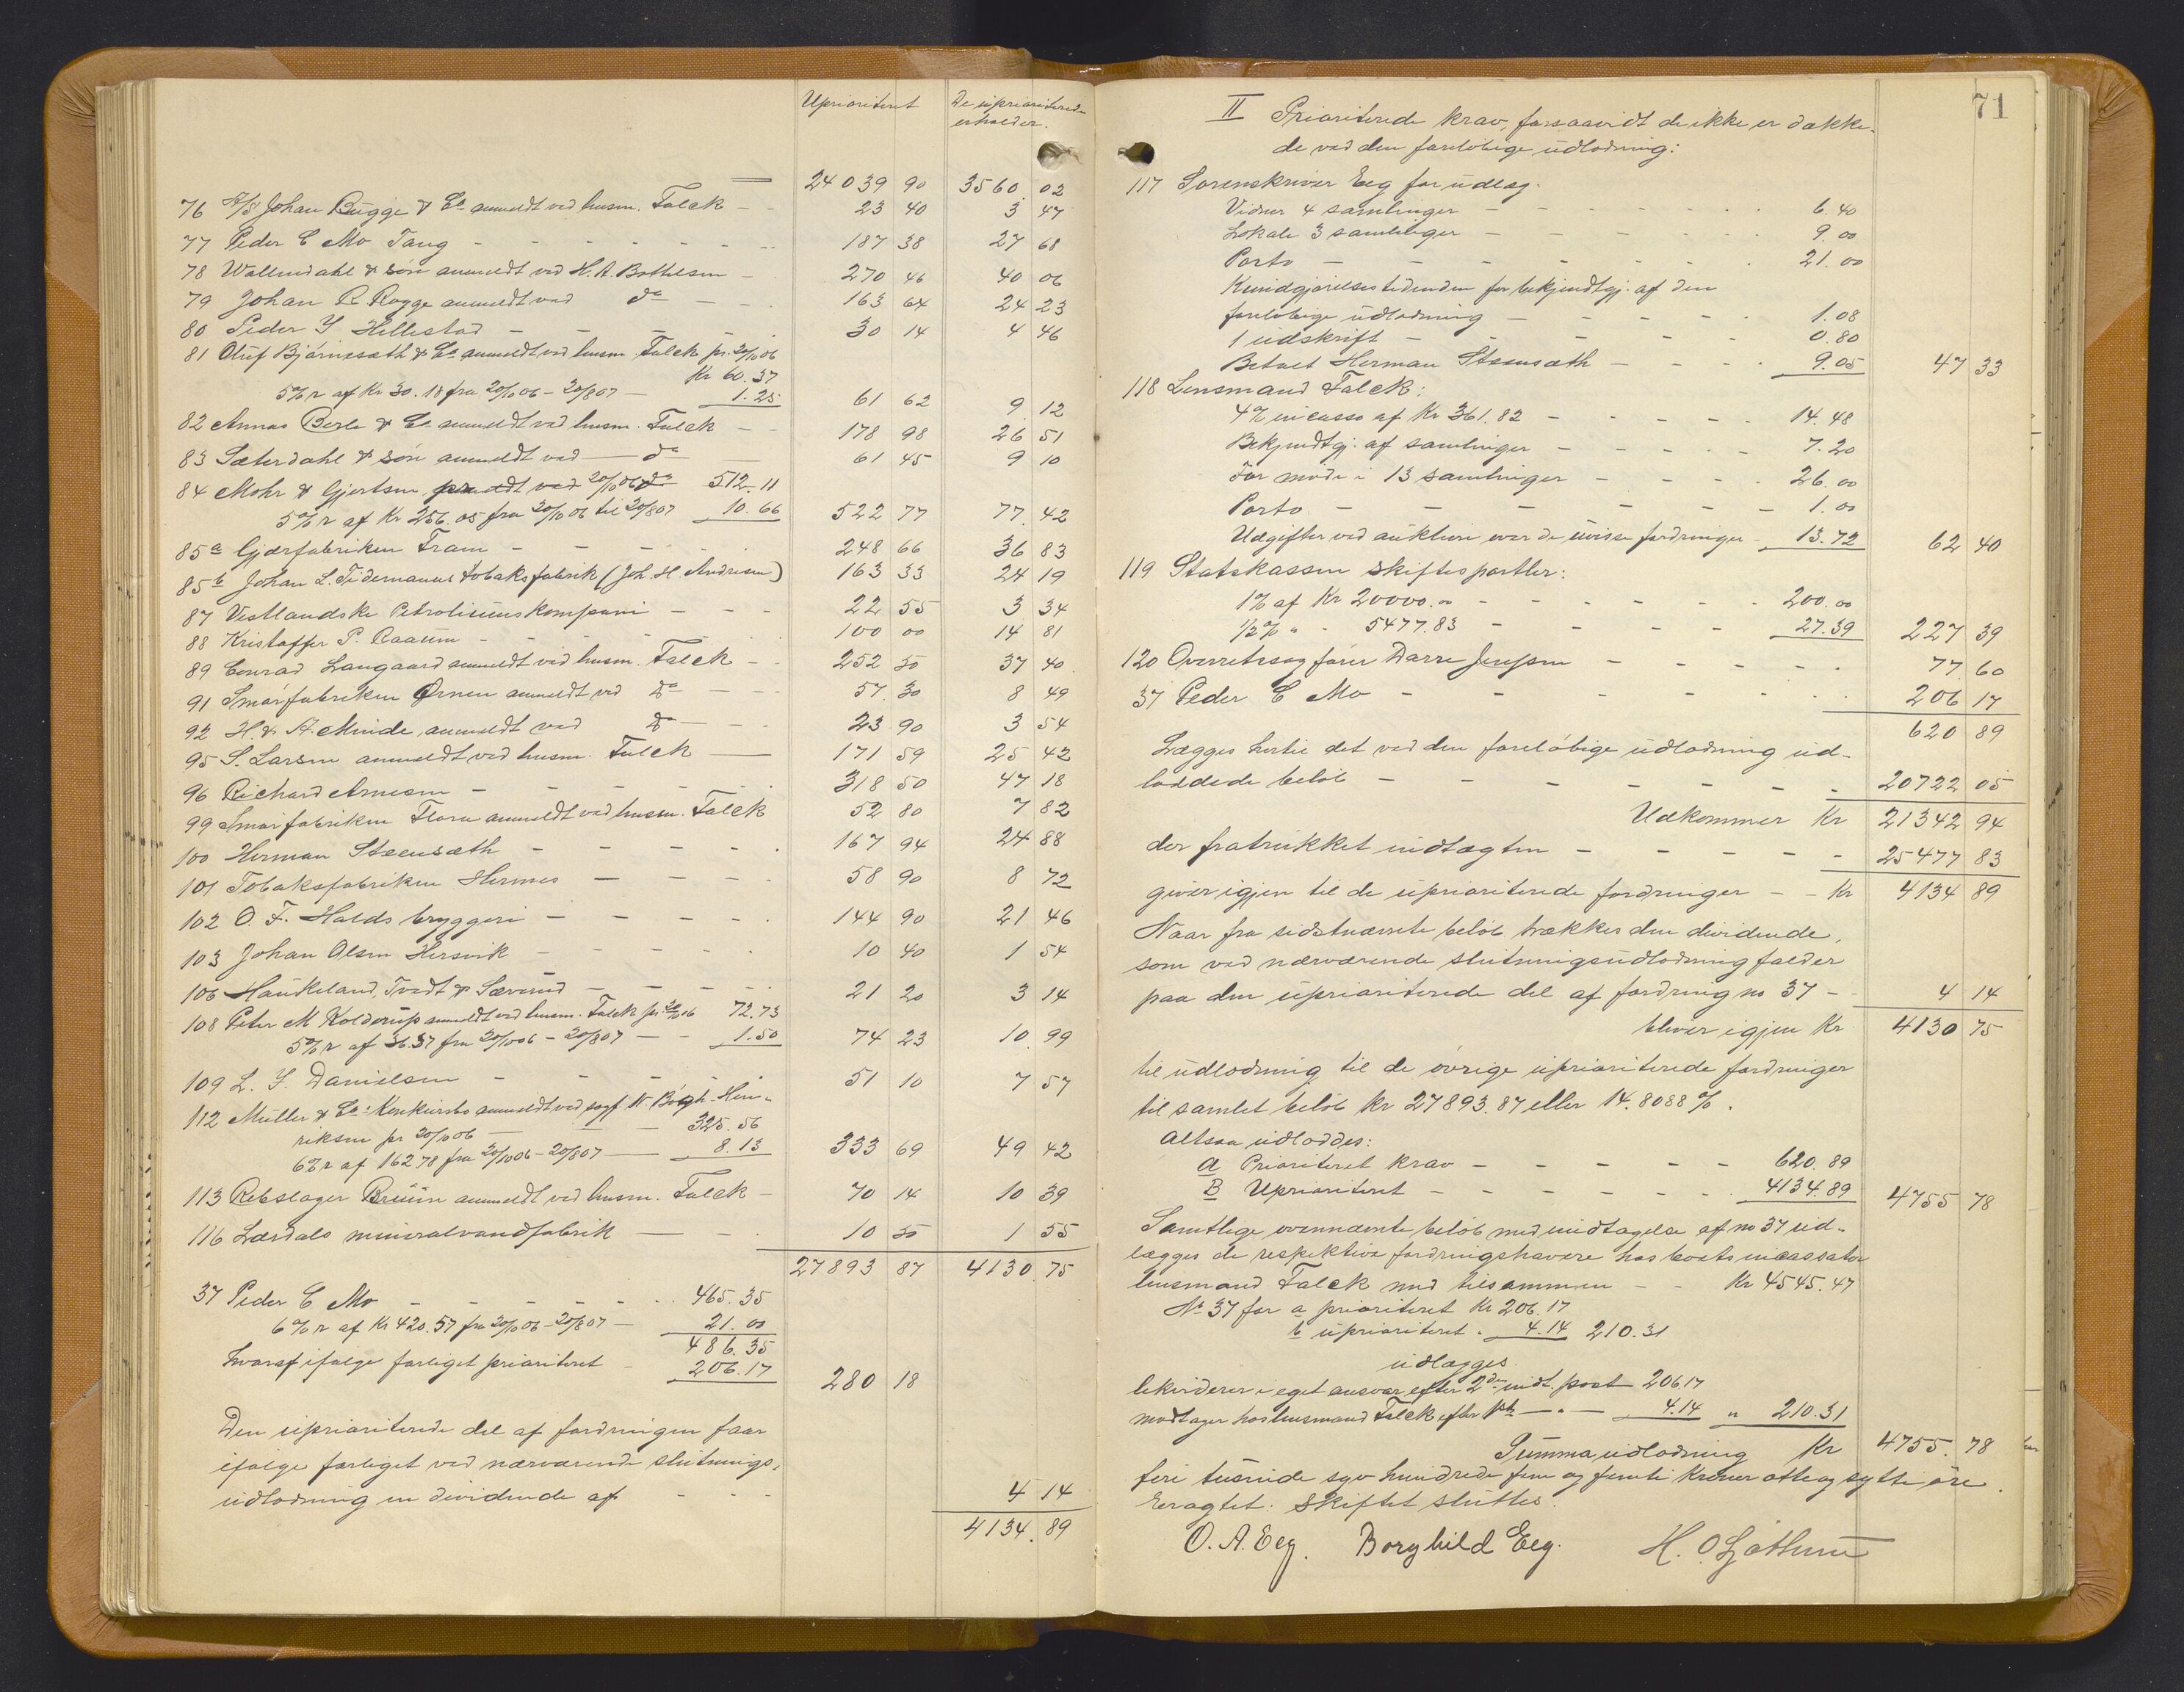 Uprioriteret De uprioriterede
erholder.
24039 90 3560 02
76 A/S Johan Bugge & Co anmeldt ved lensm. Falck 23 40 3 47
77 Peder C Mo Tang 187 38 27 68
78 Wallendahl & søn anmeldt ved H. A. Bothelsen 270 46 40 06
79 Johan R Rogge anmeldt ved do 163 64 24 23
80 Peder Y Hillestad 30 14 4 46
81 Oluf Bjørnesæth & Co anmeldt ved lensm Falck pr. 20/10 06
Kr 60.37
5% r af Kr 30.18 fra 20/10 06 - 20/8 07 1.25 61 62 9 12
82 Annas Berle & Co anmeldt ved lensm. Falck 178 98 26 51
83 Sæterdahl & søn anmeldt ved do 61 45 9 10
84 Mohr & Gjertsen anmeldt ved 20/10 06 do 512.11
5% r af Kr 256.05 fra 20/10 06 til 20/8 07 10.66 522 77 77 42
85a Gjærfabriken Fram 248 66 36 83
85b Johan L. Tidemanns tobaksfabrik (Joh. H Andresen) 163 33 24 19
87 Vestlandske Petroliumskompani 22 55 3 34
88 Kristoffer P. Raaum 100 00 14 81
89 Conrad Langaard anmeldt ved lensm. Falck 252 50 37 40
91 Smørfabriken Ørnen anmeldt ved do 57 30 8 49
92 H. & A. Minde, anmeldt ved do 23 90 3 54
95 S. Larsen anmeldt ved lensm. Falck 171 59 25 42
96 Richard Arnesen 318 50 47 18
99 Smørfabriken Flora anmeldt ved lensm. Falck 52 80 7 82
100 Herman Steensæth 167 94 24 88
101 Tobaksfabriken Hermes 58 90 8 72
102 O. F. Halds bryggeri 144 90 21 46
103 Johan Olsen Hersvik 10 40 1 54
106 Haukeland, Tvedt & Sæverud 21 20 3 14
108 Peter M Kolderup anmeldt ved lensm. Falck pr. 20/10 06 72.73
5% r af 36.37 fra 20/10 06 - 20/8 07 1.50 74 23 10 99
109 L. Y. Danielsen 51 10 7 57
112 Müller & Co: Konkursbo anmeldt ved sagf. W. Bøgh Hen-
riksen pr 20/10 06 325.56
6% r af 162 78 fra 20/10 06 - 20/8 07 8.13 333 69 49 42
113 Rebslager Bruun anmeldt ved lensm. Falck 70 14 10 39
116 Lærdals mineralvandfabrik 10 50 1 55
27893 87 4130 75
37 Peder C Mo 465.35
6% r af Kr 420.57 fra 20/10 06 - 20/8 07 21.00
486.35
hvoraf ifølge forliget prioriteret 206.17 280 18
Den uprioriterede del af fordringen faar
ifølge forliget ved nærværende slutnings-
udlodning en dividende af 4 14
4134.89
71
II Prioriterede krav, forsaavidt de ikke er dække-
de ved den foreløbige udlodning:
117 Sorenskriver Eeg for udlæg.
Vidner 4 samlinger 6.40
Lokale 3 samlinger 9.00
Porto 21.00
Kundgjørelsestidenden for bekjendtgj. af den
foreløbige udlodning 1.08
1 udskrift 0.80
Betalt Herman Steensæth 9.05 47 33
118 Lensmand Falck:
4% incasso af Kr 361.82 14.48
Bekjendtgj. af samlinger 7.20
For møde i 13 samlinger 26.00
Porto 1.00
Udgifter ved auktion over de uvisse fordringer 13.72 62 40
119 Statskassen skiftesportler:
1% af Kr 20000.00 200.00
1/2 % " - 5477.83 27.39 227 39
120 Overretssagfører Darre Jenssen 77 60
37 Peder C Mo 206 17
620 89
Lægges hertil det ved den foreløbige udlodning ud-
loddede beløb 20722 05
Udkommer Kr 21342 94
der fratrukket indtægten 25477 83
giver igjen til de uprioriterede fordringer Kr 4134 89
Naar fra sidstnævnte beløb trækkes den dividende,
som ved nærværende slutningsudlodning falder
paa den uprioriterede del af fordring no 37 - 4 14
bliver igjen Kr 4130 75
til udlodning til de øvrige uprioriterede fordringer
til samlet beløb Kr 27893.87 eller 14.8088 %.
Altsaa udloddes:
A Prioriteret krav 620.89
B Uprioriteret 4134.89 4755 78
Samtlige ovennævnte beløb med undtagelse af no 37 ud-
lægges de respektive fordringshavere hos boets incassator
lensmand Falck med tilsammen Kr 4545.47
No 37 for a prioriteret Kr 206.17
b uprioriteret " 4.14 210.31
udlægges
likviderer i eget ansvar efter 2den indt. post 206.17
modtager hos lensmand Falck efter 1ste — " — 4.14 " 210.31
Summa udlodning Kr 4755.78
fire tusinde syv hundrede fem og femti Kroner otte og sytti øre.
Eragtet: Skiftet sluttes.
O. A. Eeg. Borghild Eeg. H. O. Ljøthun